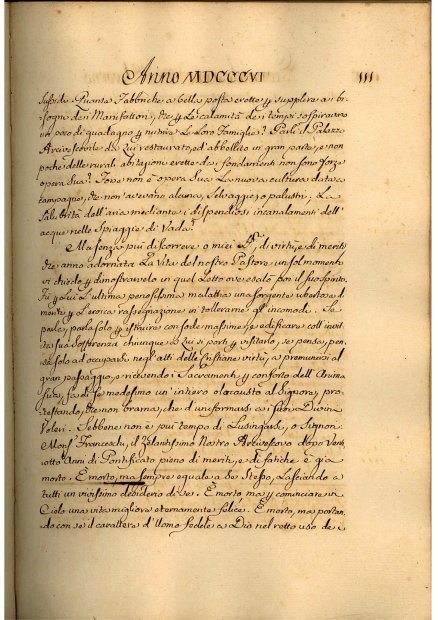 Anno MDCCCVI 111
sussidi. Quante Fabbriche a bella posta erette p supplire a i bi-
sogni dei Manifattori, che p le calamità dei tempi sospiravano
un poco di guadagno p nutrire le loro Famiglie? Parli il Palazzo
Arcivescovile da Lui restaurato, ed abbellito in gran parte, e non
poche delle rurali abitazioni erette da fondamenti non sono forse
opera Sua? Forse non è opera Sua la nuova cultura data a
campagne, che non n'avevano alcuna, selvaggie, o palustri, La
salubrità dell'aria mediante i dispendiosi incanalamenti dell'
acque nelle Spiaggie di Vada?
Ma senza più discorrere o miei di virtù, e di meriti
che anno adornata la vita del nostro Pastore un sol momento
vi chiedo p dimostrarvelo in quel Letto ove esalò poi il suo Spirito.
Fù p Lui l'ultima penosissima malattia una sorgente ubertosa di
meriti p l'eroica rassegnazione in tollerarne gl'incomodi. Se
parla, parla solo p istruire con sode massime, e edificare coll'invit-
ta sua sofferenza chiunque da Lui si porti p visitarlo, se pensa, pen-
sa solo ad occuparsi negli atti delle Cristiane virtù, a premunirsi al
gran passaggio, e ricevendo i Sacramenti p conforto dell'Anima
sua, fa di se medesimo un'intiero olocausto al Signore, pro-
testando, che non brama, che d'uniformarsi a i suoi Divini
Voleri. Sebbene non è più tempo di Lusingarsi, o Signori.
Mons.r Franceschi, il zelantissimo Nostro Arcivescovo dopo Vent'
otto Anni di Pontificato pieno di meriti, e di fatiche è già
morto. È morto, ma sempre eguale a Se Stesso, Lasciando a
tutti un vivissimo desiderio di se. È morto ma p cominciare in
Cielo una vita migliore eternamente felice. È morto, ma portan-
do con se il carattere d'Uomo fedele a Dio nel retto uso de i